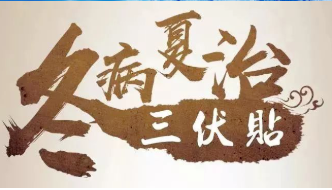 冬病夏治
三伏貼